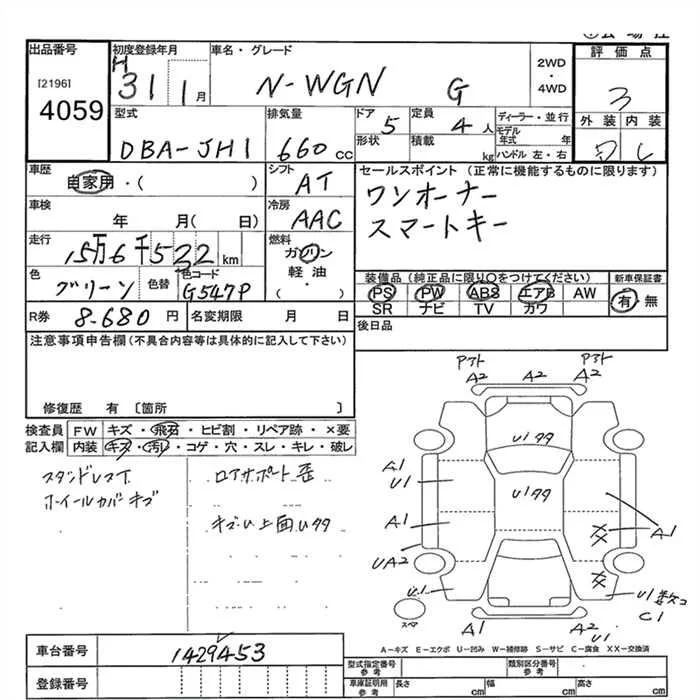 出品番号 初度登録年月 車名・グレード 2WD ・ 4WD 評価点
[2196]
4059
H 31 1月 N-WGN G 3
型式 排気量 ドア 5 定員 4人 ディーラー・並行 外装 内装
DBA-JH1 660cc 形状 積載 kg モデル年式 年 ハンドル 左・右 C
車歴 シフト セールスポイント(正常に機能するものに限ります)
自家用・( ) AT ワンオーナー
車検 冷房 スマートキー
年 月( 日) AAC
走行 燃料
15万6千522km ガソリン
色 色替 色コード 軽油・
グリーン G547P ( )
装備品(純正品に限り○をつけてください) 新車保証書
PS PW ABS エアB AW 有・無
SR ナビ TV カワ
R券 8-680円 名変期限 月 日 後日品
注意事項申告欄(不具合内容等は具体的に記入して下さい)
修復歴 有 〔箇所 〕
検査員 FW キズ・飛石・ヒビ割・リペア跡・×要
記入欄 内装 キズ・汚レ・コゲ・穴・スレ・キレ・破レ
ロアサポート歪
ホイールカバーキズ
キズU 上面Uタタ
アフト アフト
A2 A2 A2
Uタタ
A1
U1
U1タタ
A1 A1
UA2
U1 U1 数コ
C1
スペア
A1 A2
U1
A-キズ E-エクボ U-凹み W-補修跡 S-サビ C-腐食 XX-交換済
車台番号 1429453
登録番号
型式指定番号 参考 類別区分番号 参考
車庫証明用 参考 長さ cm 幅 cm 高さ cm